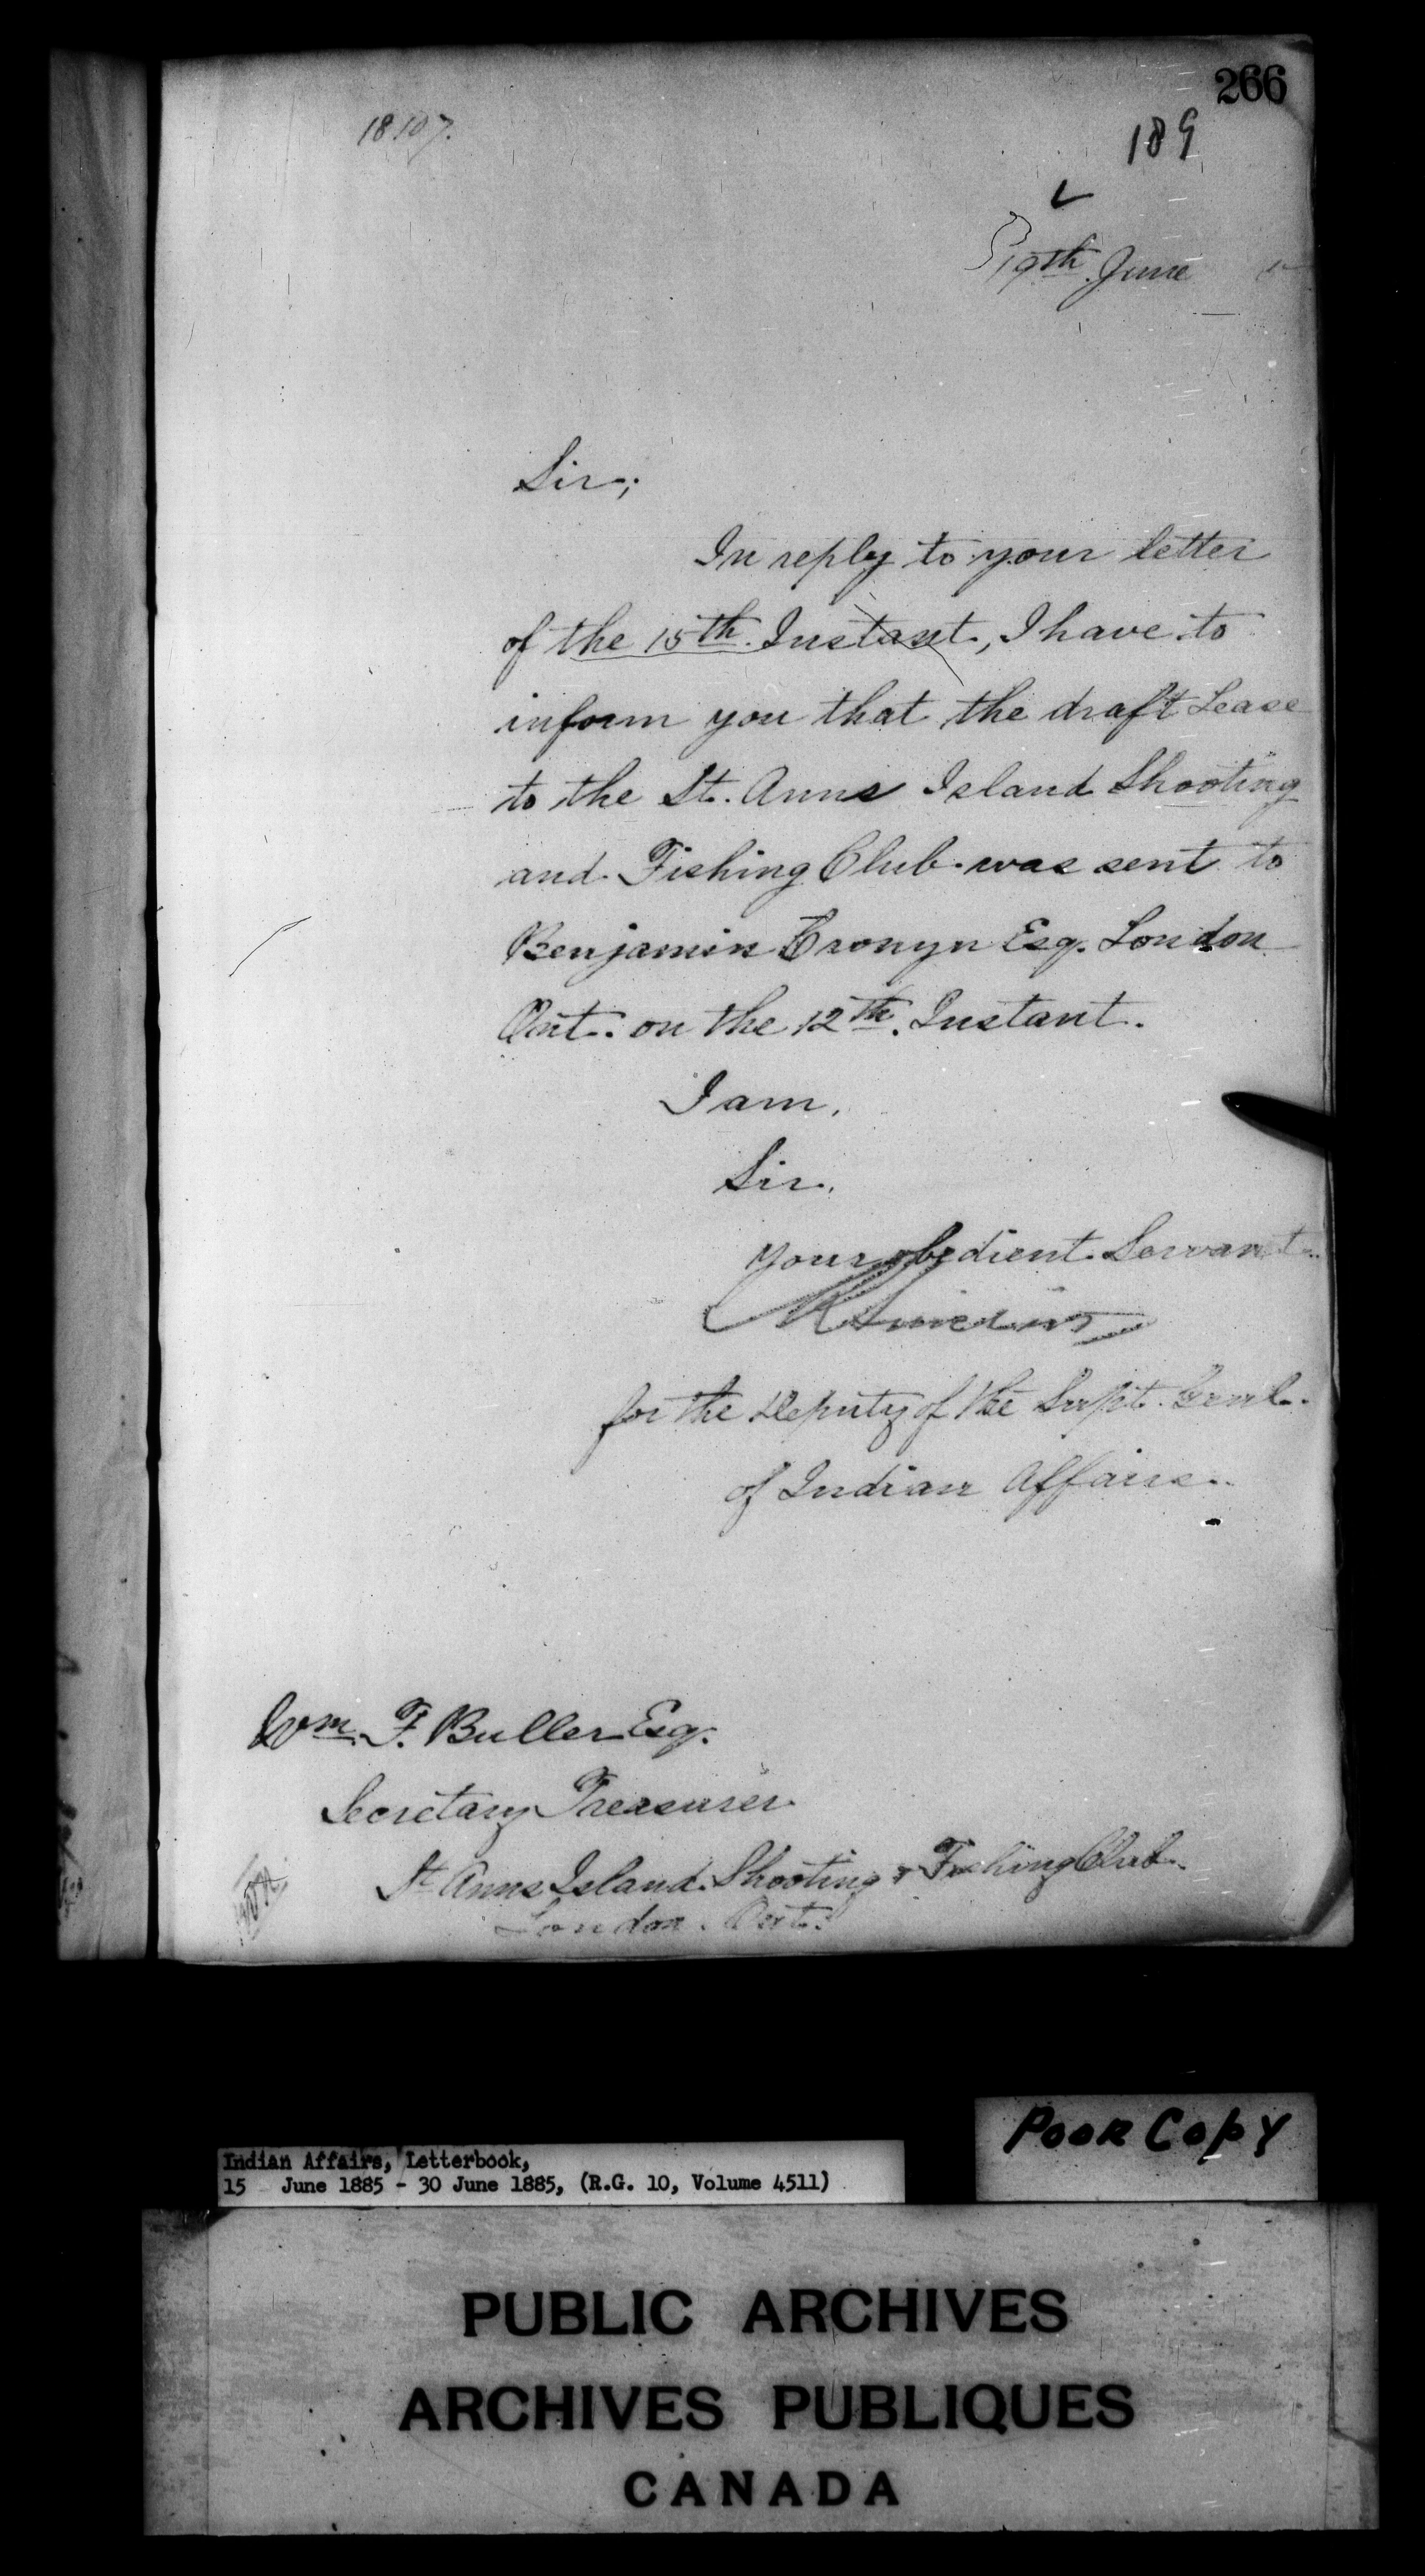 266
18107.
189
19th June
Sir,
In reply to your letter
of the 15th Instant, I have to
inform you that the draft Lease
to the St. Anns Island Shooting
and Fishing Club was sent to
Benjamin Cronyn Esq. London
Ont. on the 12th Instant.
I am,
Sir,
Your obedient Servant
for the Deputy of the Supt. Genl.
of Indian Affairs.
Wm. F. Buller Esq.
Secretary Treasurer
St Anns Island Shooting & Fishing Club
London. Ont.
Poor Copy
Indian Affairs, Letterbook,
15 June 1885 - 30 June 1885, (R.G. 10, Volume 4511)
PUBLIC ARCHIVES
ARCHIVES PUBLIQUES
CANADA